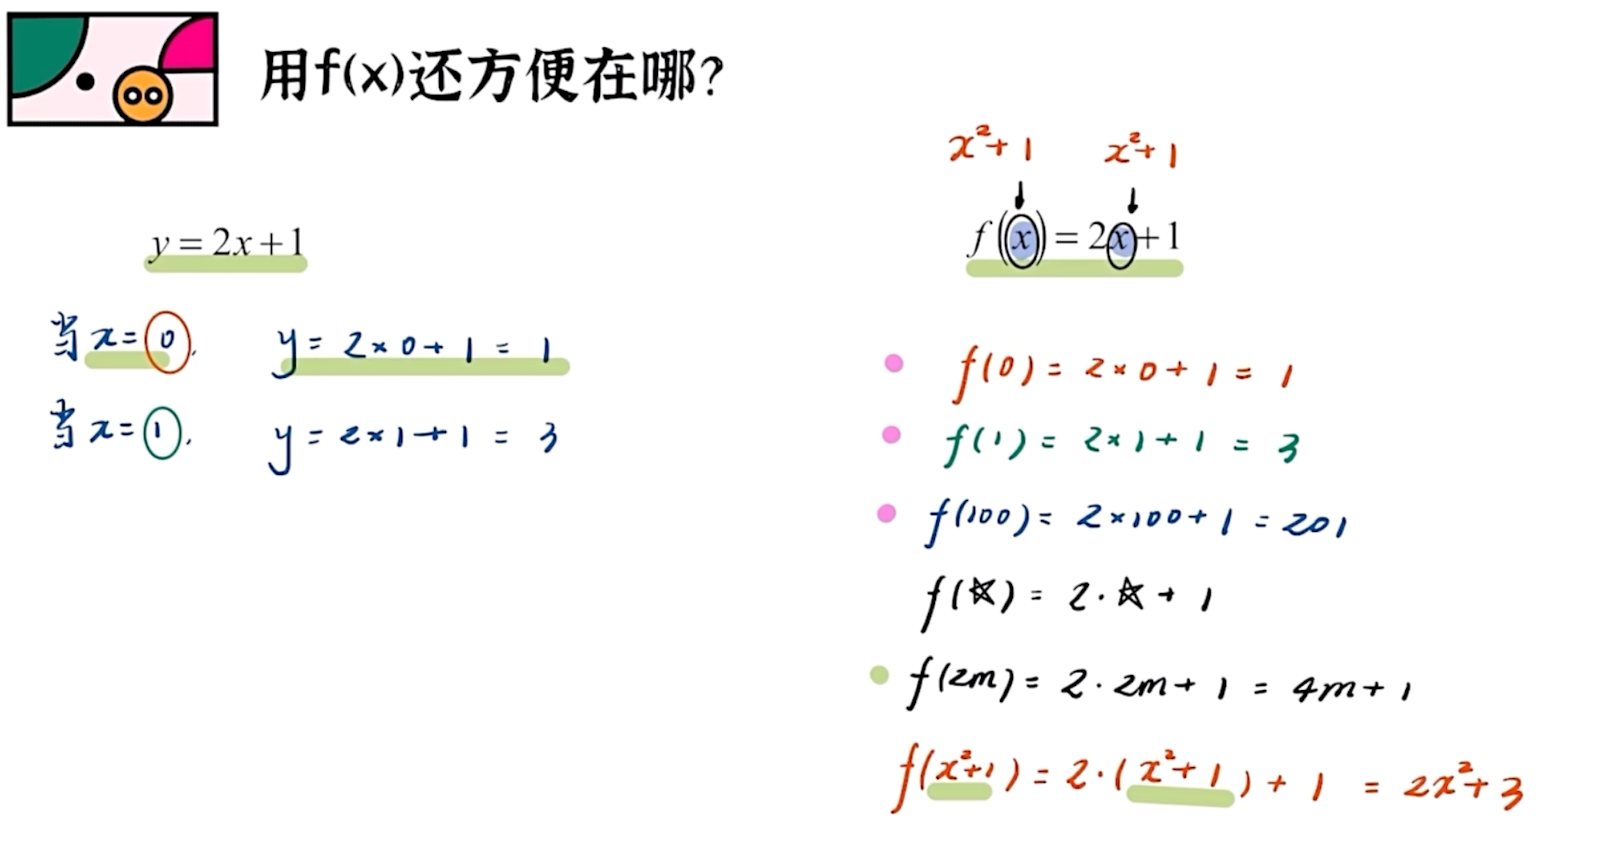 用f(x)还方便在哪?
y = 2x+1
当 x = 0, y = 2×0+1 = 1
当 x = 1, y = 2×1+1 = 3
x²+1 x²+1
f(x) = 2x+1
f(0) = 2×0+1 = 1
f(1) = 2×1+1 = 3
f(100) = 2×100+1 = 201
f(☆) = 2·☆+1
f(2m) = 2·2m+1 = 4m+1
f(x²+1) = 2·(x²+1)+1 = 2x²+3